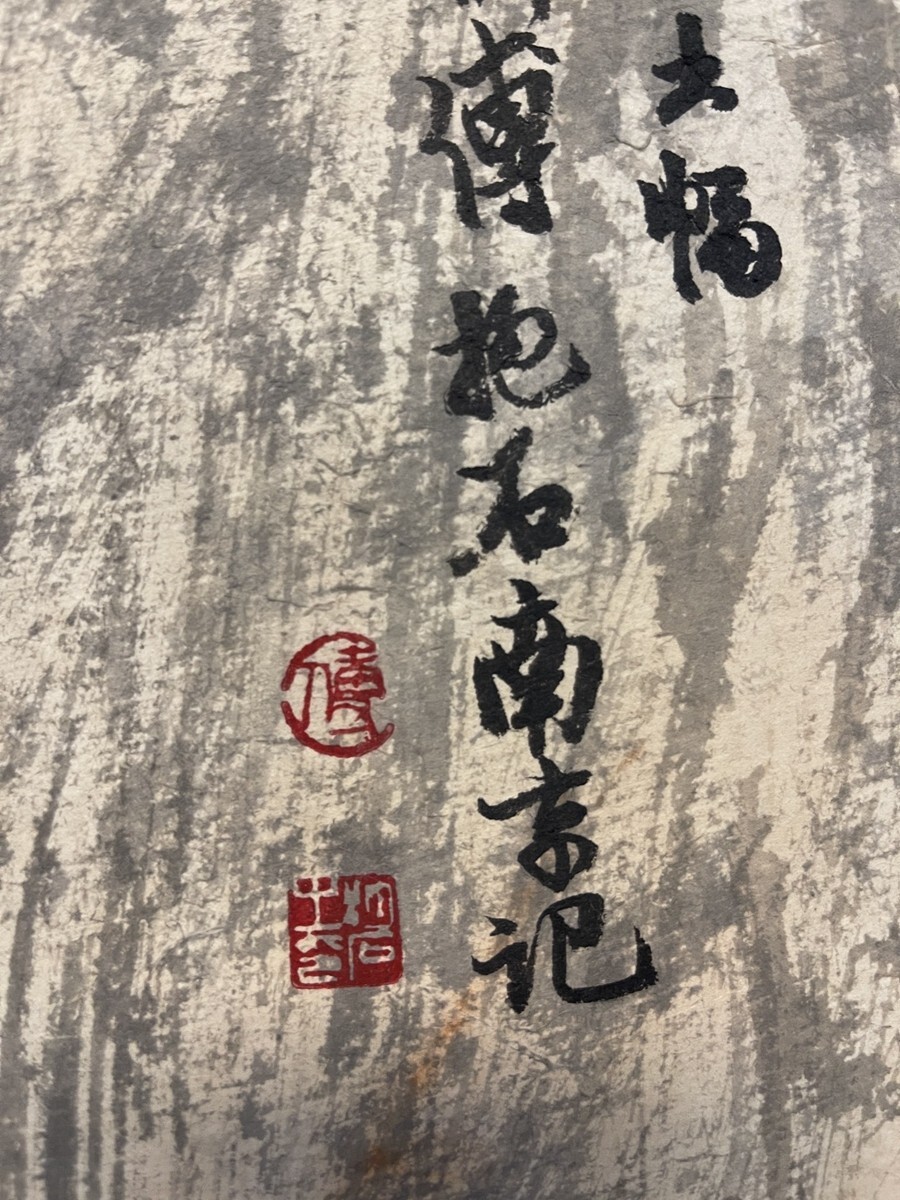 大幅
傅抱石南京记
傅
抱石